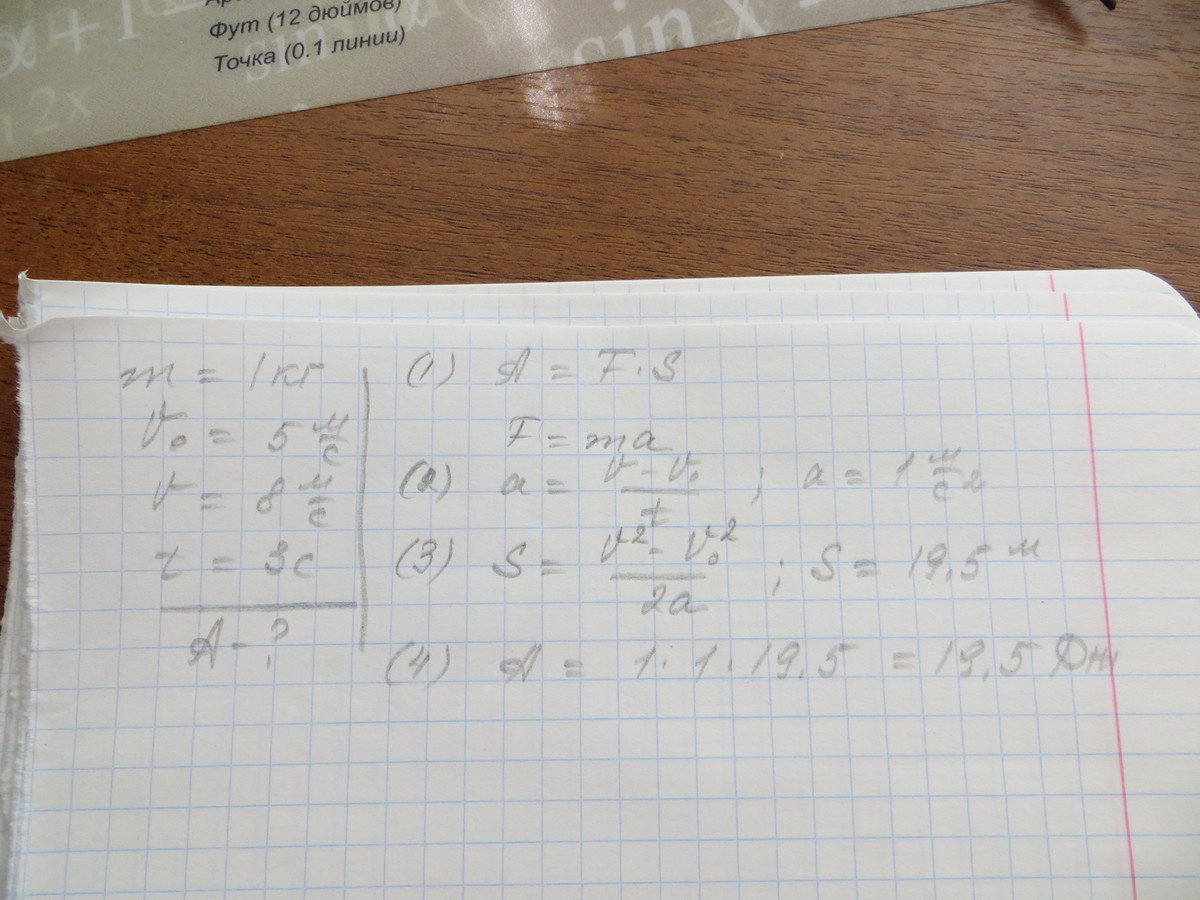 Фут (12 дюймов)
Точка (0.1 линии)
α + 1
sin α
sin x
2x
m = 1 кг
V₀ = 5 м/с
V = 8 м/с
t = 3с
A - ?
(1) A = F · S
F = ma
(2) a = (V - V₀)/t ; a = 1 м/с²
(3) S = (V² - V₀²)/2a ; S = 19,5 м
(4) A = 1 · 1 · 19,5 = 19,5 Дж